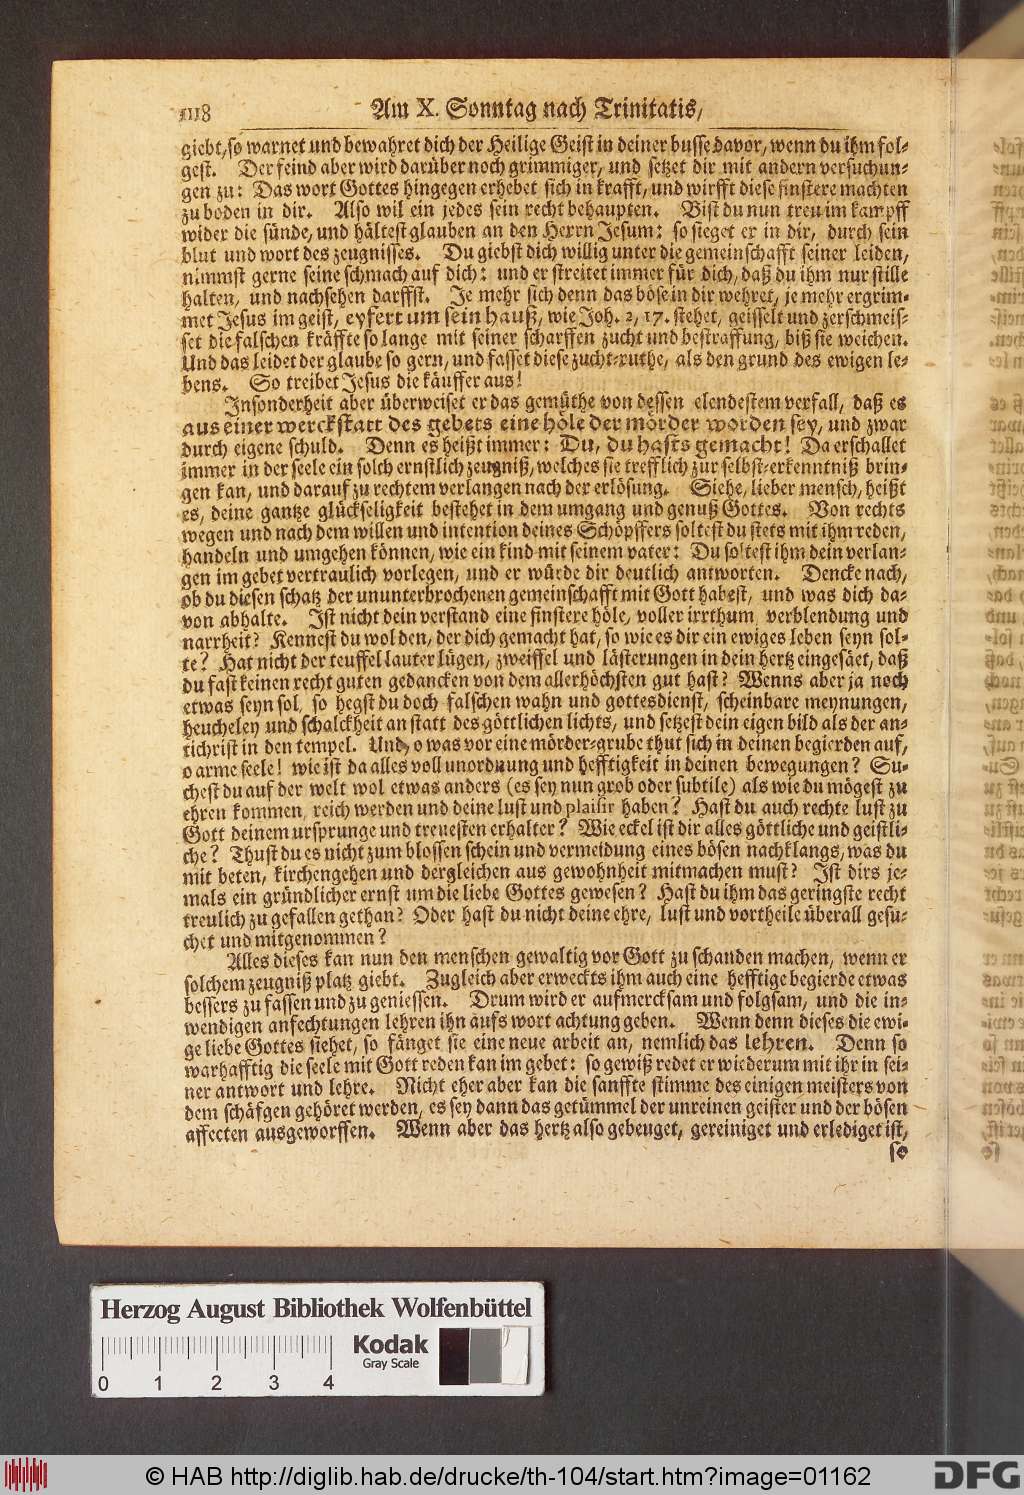 1118 Am X. Sonntag nach Trinitatis,
giebt, so warnet und bewahret dich der Heilige Geist in deiner busse davor, wenn du ihm fol-
gest. Der feind aber wird darüber noch grimmiger, und setzet dir mit andern versuchun-
gen zu: Das wort Gottes hingegen erhebet sich in krafft, und wirfft diese finstere machten
zu boden in dir. Also wil ein jedes sein recht behaupten. Bist du nun treu im kampff
wider die sünde, und hältest glauben an den Herrn Jesum: so sieget er in dir, durch sein
blut und wort des zeugnisses. Du giebst dich willig unter die gemeinschafft seiner leiden,
nimmst gerne seine schmach auf dich: und er streitet immer für dich, daß du ihm nur stille
halten, und nachsehen darffst. Je mehr sich denn das böse in dir wehret, je mehr ergrim-
met Jesus im geist, eyfert um sein hauß, wie Joh. 2, 17. stehet, geisselt und zerschmeis-
set die falschen kräffte so lange mit seiner scharffen zucht und bestraffung, biß sie weichen.
Und das leidet der glaube so gern, und fasset diese zucht-ruthe, als den grund des ewigen le-
bens. So treibet Jesus die käuffer aus!
Insonderheit aber überweiset er das gemüthe von dessen elendestem verfall, daß es
aus einer werckstatt des gebets eine höle der mörder worden sey, und zwar
durch eigene schuld. Denn es heißt immer: Du, du hasts gemacht! Da erschallet
immer in der seele ein solch ernstlich zeugniß, welches sie trefflich zur selbst-erkenntniß brin-
gen kan, und darauf zu rechtem verlangen nach der erlösung. Siehe, lieber mensch, heißt
es, deine gantze glückseligkeit bestehet in dem umgang und genuß Gottes. Von rechts
wegen und nach dem willen und intention deines Schöpffers soltest du stets mit ihm reden,
handeln und umgehen können, wie ein kind mit seinem vater: Du soltest ihm dein verlan-
gen im gebet vertraulich vorlegen, und er würde dir deutlich antworten. Dencke nach,
ob du diesen schatz der ununterbrochenen gemeinschafft mit Gott habest, und was dich da-
von abhalte. Ist nicht dein verstand eine finstere höle, voller irrthum, verblendung und
narrheit? Kennest du wol den, der dich gemacht hat, so wie es dir ein ewiges leben seyn sol-
te? Hat nicht der teuffel lauter lügen, zweiffel und lästerungen in dein hertz eingesäet, daß
du fast keinen recht guten gedancken von dem allerhöchsten gut hast? Wenns aber ja noch
etwas seyn sol, so hegst du doch falschen wahn und gottesdienst, scheinbare meynungen,
heucheley und schalckheit an statt des göttlichen lichts, und setzest dein eigen bild als der an-
tichrist in den tempel. Und, o was vor eine mörder-grube thut sich in deinen begierden auf,
o arme seele! wie ist da alles voll unordnung und hefftigkeit in deinen bewegungen? Su-
chest du auf der welt wol etwas anders (es sey nun grob oder subtile) als wie du mögest zu
ehren kommen, reich werden und deine lust und plaisir haben? Hast du auch rechte lust zu
Gott deinem ursprunge und treuesten erhalter? Wie eckel ist dir alles göttliche und geistli-
che? Thust du es nicht zum blossen schein und vermeidung eines bösen nachklangs, was du
mit beten, kirchengehen und dergleichen aus gewohnheit mitmachen must? Ist dirs je-
mals ein gründlicher ernst um die liebe Gottes gewesen? Hast du ihm das geringste recht
treulich zu gefallen gethan? Oder hast du nicht deine ehre, lust und vortheile überall gesu-
chet und mitgenommen?
Alles dieses kan nun den menschen gewaltig vor Gott zu schanden machen, wenn er
solchem zeugniß platz giebt. Zugleich aber erweckts ihm auch eine hefftige begierde etwas
bessers zu fassen und zu geniessen. Drum wird er aufmercksam und folgsam, und die in-
wendigen anfechtungen lehren ihn aufs wort achtung geben. Wenn denn dieses die ewi-
ge liebe Gottes siehet, so fänget sie eine neue arbeit an, nemlich das lehren. Denn so
warhafftig die seele mit Gott reden kan im gebet: so gewiß redet er wiederum mit ihr in sei-
ner antwort und lehre. Nicht eher aber kan die sanffte stimme des einigen meisters von
dem schäfgen gehöret werden, es sey dann das getümmel der unreinen geister und der bösen
affecten ausgeworffen. Wenn aber das hertz also gebeuget, gereiniget und erlediget ist,
so
Herzog August Bibliothek Wolfenbüttel
Kodak
Gray Scale
0 1 2 3 4
© HAB http://diglib.hab.de/drucke/th-104/start.htm?image=01162
DFG